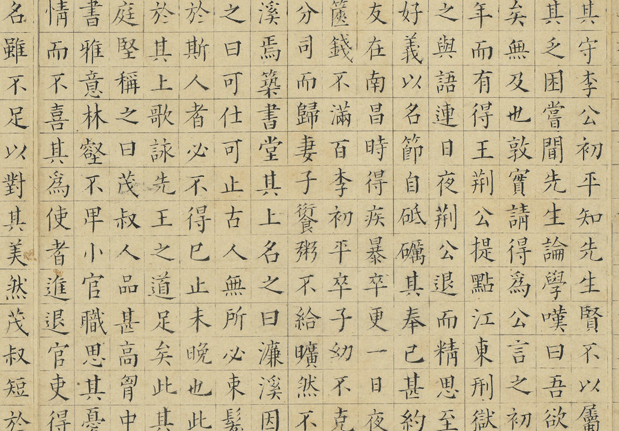 其守李公初平知先生賢不以屬
其乏困嘗聞先生論學嘆曰吾欲
矣無及也敦實請得為公言之初
年而有得王荊公提點江東刑獄
之與語連日夜荊公退而精思至
好義以名節自砥礪其奉已甚約
友在南昌時得疾暴卒更一日夜
篋錢不滿百李初平卒子幼不克
分司而歸妻子饘粥不給曠然不
溪焉築書堂其上名之曰濂溪因
之曰可仕可止古人無所必束髮
於斯人者必不得已止未晚也此
於其上歌詠先王之道足矣此其
庭堅稱之曰茂叔人品甚高胷中
書雅意林壑不卑小官職思其憂
情而不喜其為使者進退官吏得
名雖不足以對其美然茂叔短於